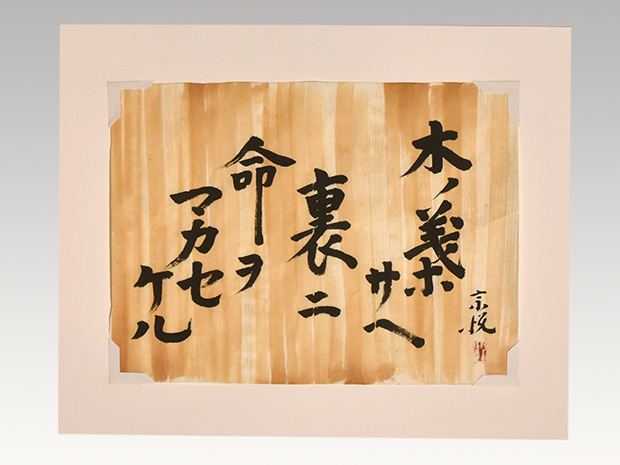 木ノ葉
サヘ
裏ニ
命ヲ
マカセ
ケル
宗悦